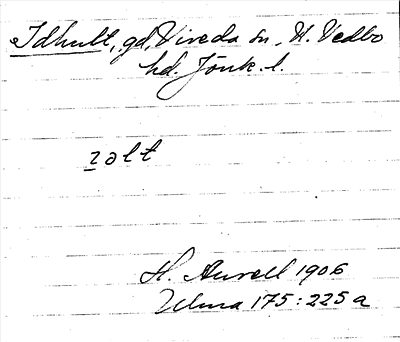 Idhult, gd, Vireda sn, N. Vedbo
hd. Jönk. l.
ɩəlt
H. Aurell 1906
Ulma 175:225a